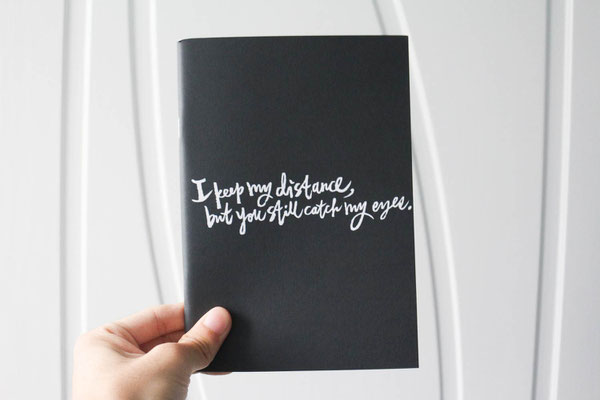 I keep my distance,
but you still catch my eyes.